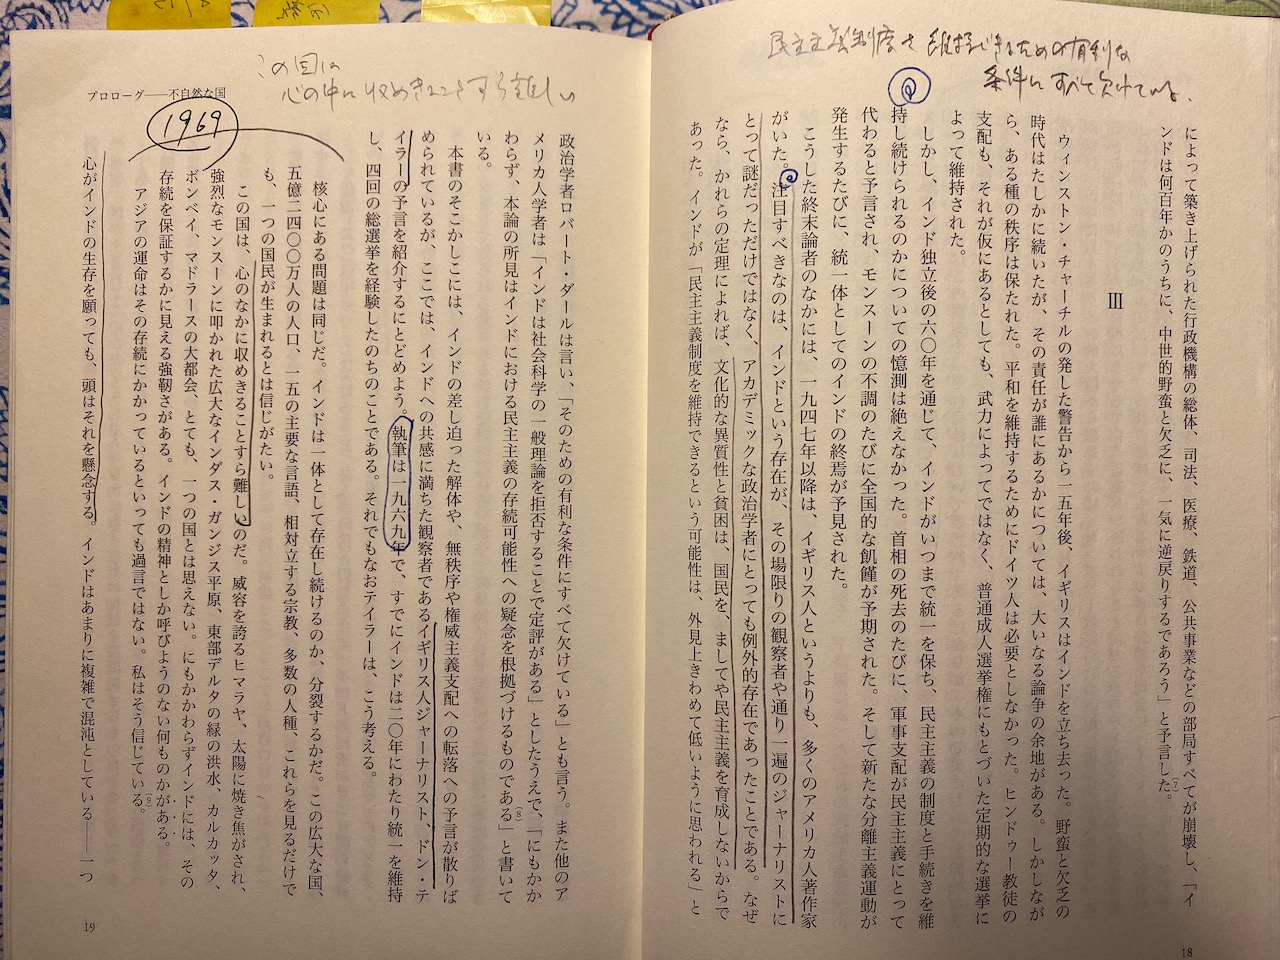 民主主義制度を維持できるための有利な
条件にすべて欠けている、
によって築き上げられた行政機構の総体、司法、医療、鉄道、公共事業などの部局すべてが崩壊し、「イ
ンドは何百年かのうちに、中世的野蛮と欠乏に、一気に逆戻りするであろう」と予言した。(7)
Ⅲ
ウィンストン・チャーチルの発した警告から一五年後、イギリスはインドを立ち去った。野蛮と欠乏の
時代はたしかに続いたが、その責任が誰にあるかについては、大いなる論争の余地がある。しかしなが
ら、ある種の秩序は保たれた。平和を維持するためにドイツ人は必要としなかった。ヒンドゥー教徒の
支配も、それが仮にあるとしても、武力によってではなく、普通成人選挙権にもとづいた定期的な選挙に
よって維持された。
しかし、インド独立後の六〇年を通じて、インドがいつまで統一を保ち、民主主義の制度と手続きを維
持し続けられるのかについての憶測は絶えなかった。首相の死去のたびに、軍事支配が民主主義にとって
代わると予言され、モンスーンの不調のたびに全国的な飢饉が予期された。そして新たな分離主義運動が
発生するたびに、統一体としてのインドの終焉が予見された。
こうした終末論者のなかには、一九四七年以降は、イギリス人というよりも、多くのアメリカ人著作家
がいた。注目すべきなのは、インドという存在が、その場限りの観察者や通り一遍のジャーナリストに
とって謎だっただけではなく、アカデミックな政治学者にとっても例外的存在であったことである。なぜ
なら、かれらの定理によれば、文化的な異質性と貧困は、国民を、ましてや民主主義を育成しないからで
あった。インドが「民主主義制度を維持できるという可能性は、外見上きわめて低いように思われる」と
18
プロローグ——不自然な国
この国は
心の中に収めきることすら難しい
1969
政治学者ロバート・ダールは言い、「そのための有利な条件にすべて欠けている」とも言う。また他のア
メリカ人学者は「インドは社会科学の一般理論を拒否することで定評がある」としたうえで、「にもかか
わらず、本論の所見はインドにおける民主主義の存続可能性への疑念を根拠づけるものである」と書いて(8)
いる。
本書のそこかしこには、インドの差し迫った解体や、無秩序や権威主義支配への転落への予言が散りば
められているが、ここでは、インドへの共感に満ちた観察者であるイギリス人ジャーナリスト、ドン・テ
イラーの予言を紹介するにとどめよう。執筆は一九六九年で、すでにインドは二〇年にわたり統一を維持
し、四回の総選挙を経験したのちのことである。それでもなおテイラーは、こう考える。
核心にある問題は同じだ。インドは一体として存在し続けるのか、分裂するかだ。この広大な国、
五億二四〇〇万人の人口、一五の主要な言語、相対立する宗教、多数の人種、これらを見るだけで
も、一つの国民が生まれるとは信じがたい。
この国は、心のなかに収めきることすら難しいのだ。威容を誇るヒマラヤ、太陽に焼き焦がされ、
強烈なモンスーンに叩かれた広大なインダス・ガンジス平原、東部デルタの緑の洪水、カルカッタ、
ボンベイ、マドラースの大都会、とても、一つの国とは思えない。にもかかわらずインドには、その
存続を保証するかに見える強靭さがある。インドの精神としか呼びようのない何ものかがある。
アジアの運命はその存続にかかっているといっても過言ではない。私はそう信じている。(9)
心がインドの生存を願っても、頭はそれを懸念する。インドはあまりに複雑で混沌としている——一つ
19